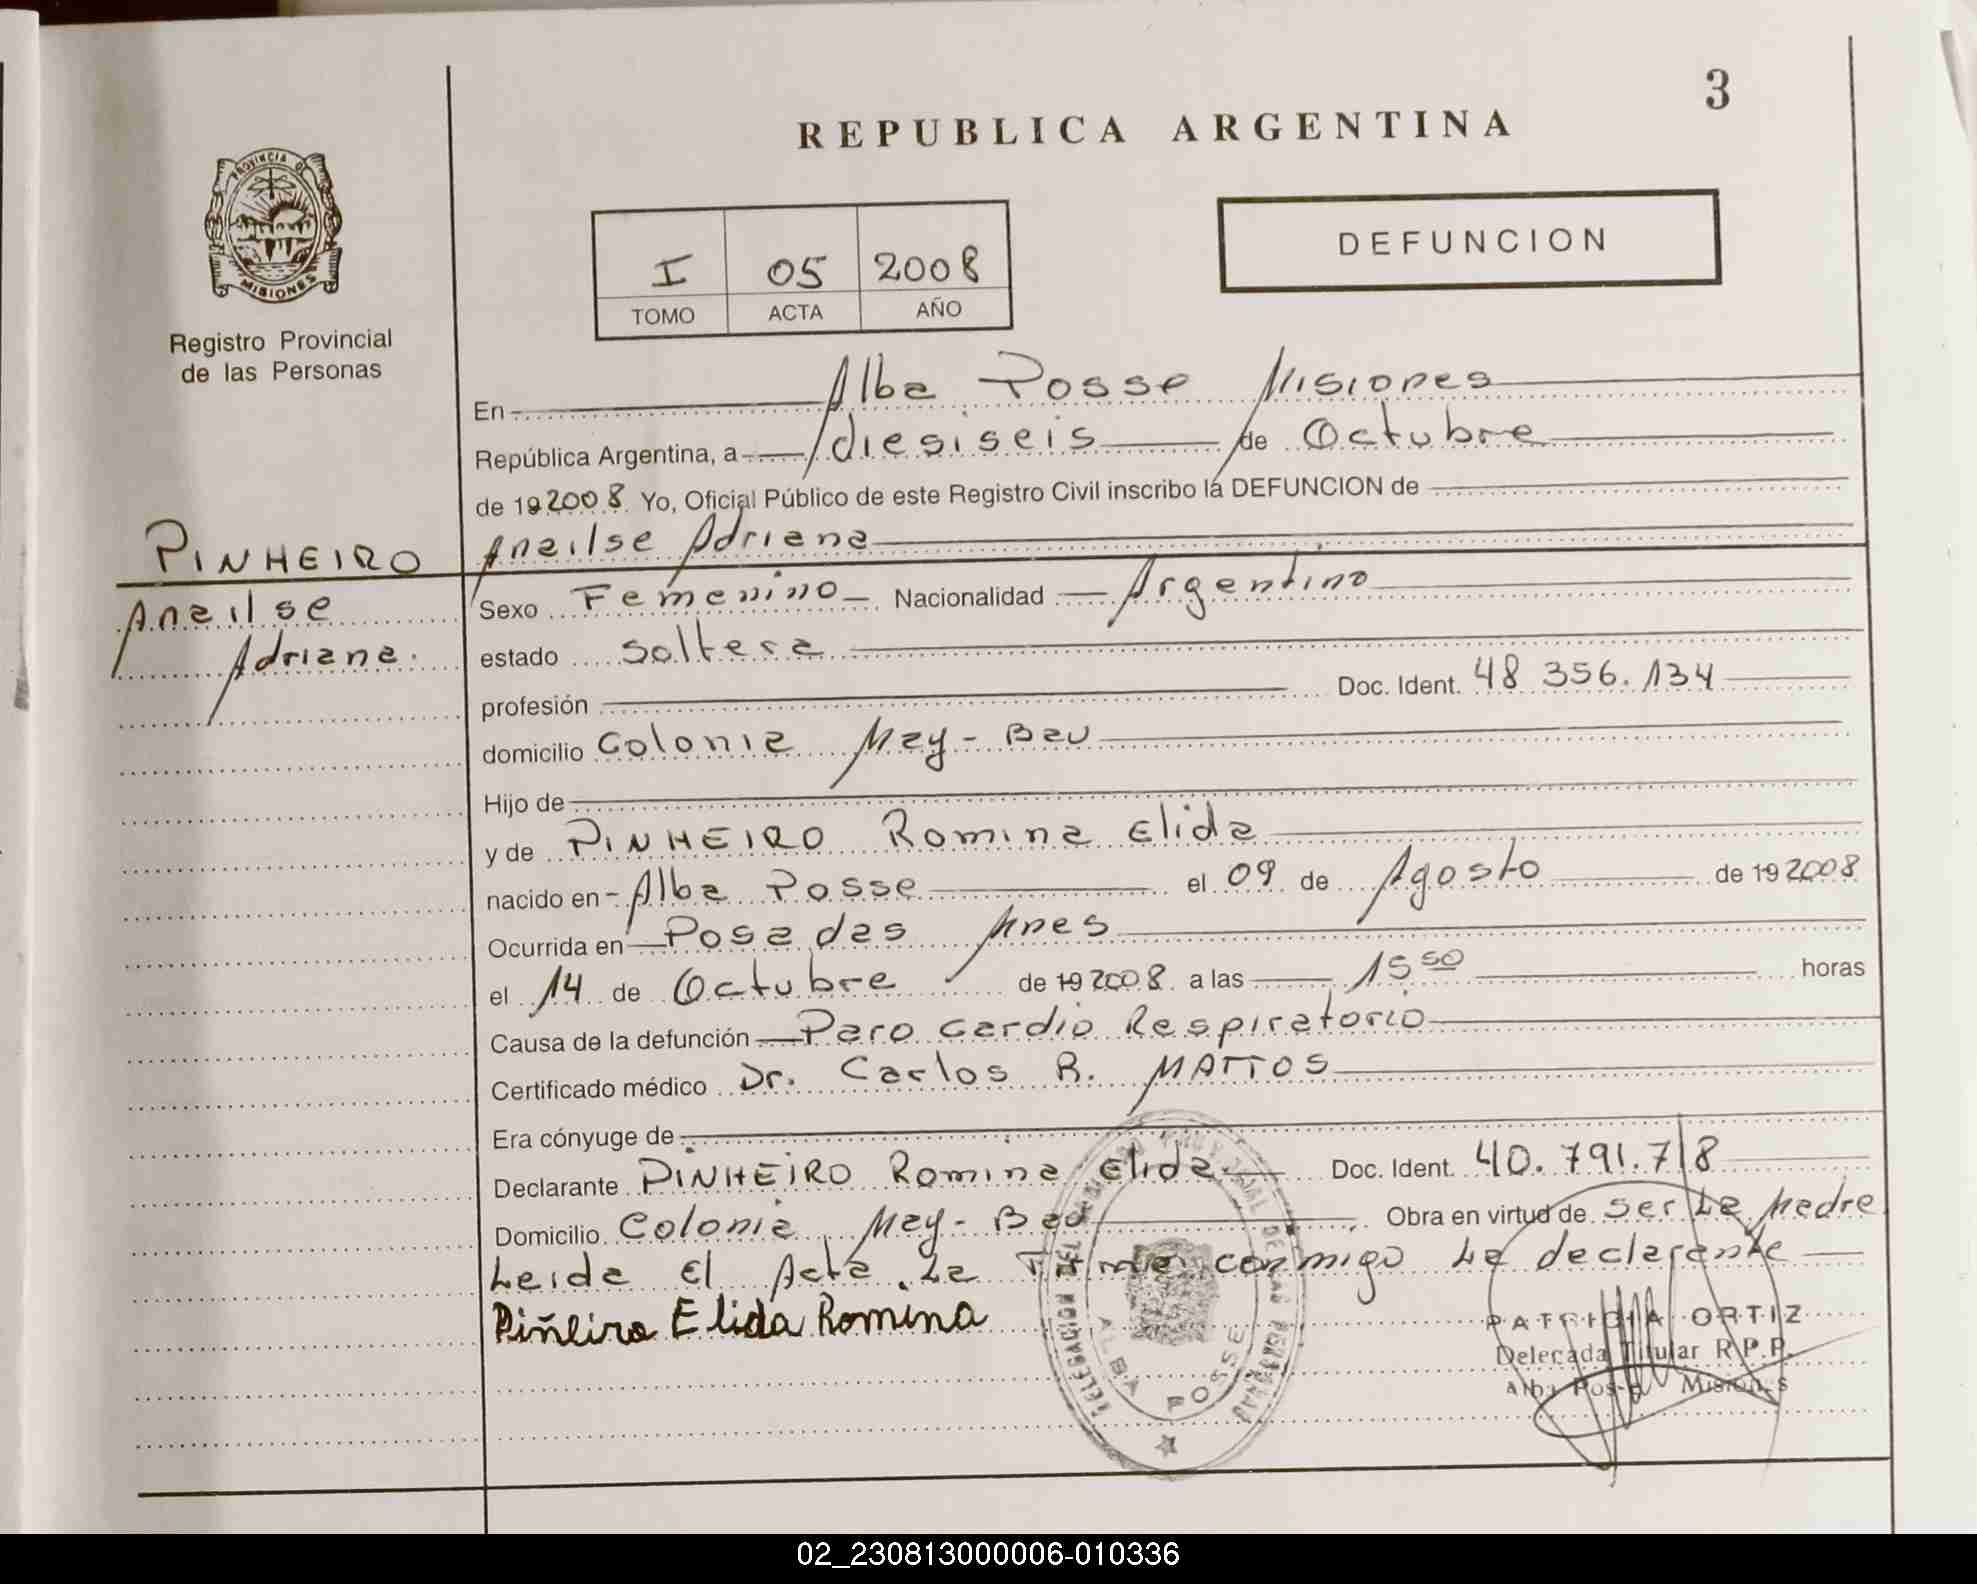 3
REPUBLICA ARGENTINA
PROVINCIA DE
MISIONES
Registro Provincial
de las Personas
I 05 2008
TOMO ACTA AÑO
DEFUNCION
En Alba Posse Misiones
República Argentina, a diesiseis de Octubre
de 19 2008 Yo, Oficial Público de este Registro Civil inscribo la DEFUNCION de
PINHEIRO
Anailse
Adriana.
Anailse Adriana
Sexo Femenino Nacionalidad Argentino
estado Soltera
profesión Doc. Ident. 48 356.134
domicilio Colonia May-Bau
Hijo de
y de PINHEIRO Romina Elida
nacido en Alba Posse el 09 de Agosto de 19 2008
Ocurrida en Posadas Mnes
el 14 de Octubre de 19 2008 a las 15 50 horas
Causa de la defunción Paro Cardio Respiratorio
Certificado médico Dr. Carlos R. MATTOS
Era cónyuge de
Declarante PINHEIRO Romina Elida Doc. Ident. 40.791.718
Domicilio Colonia May-Bau Obra en virtud de Ser La Madre
Leida El Acta La Firma conmigo La declarante
Piñeiro Elida Romina
DELEGACION
ALBA POSSE
PATRICIA ORTIZ
Delegada Titular R.P.P.
Alba Posse Misiones
02_230813000006-010336